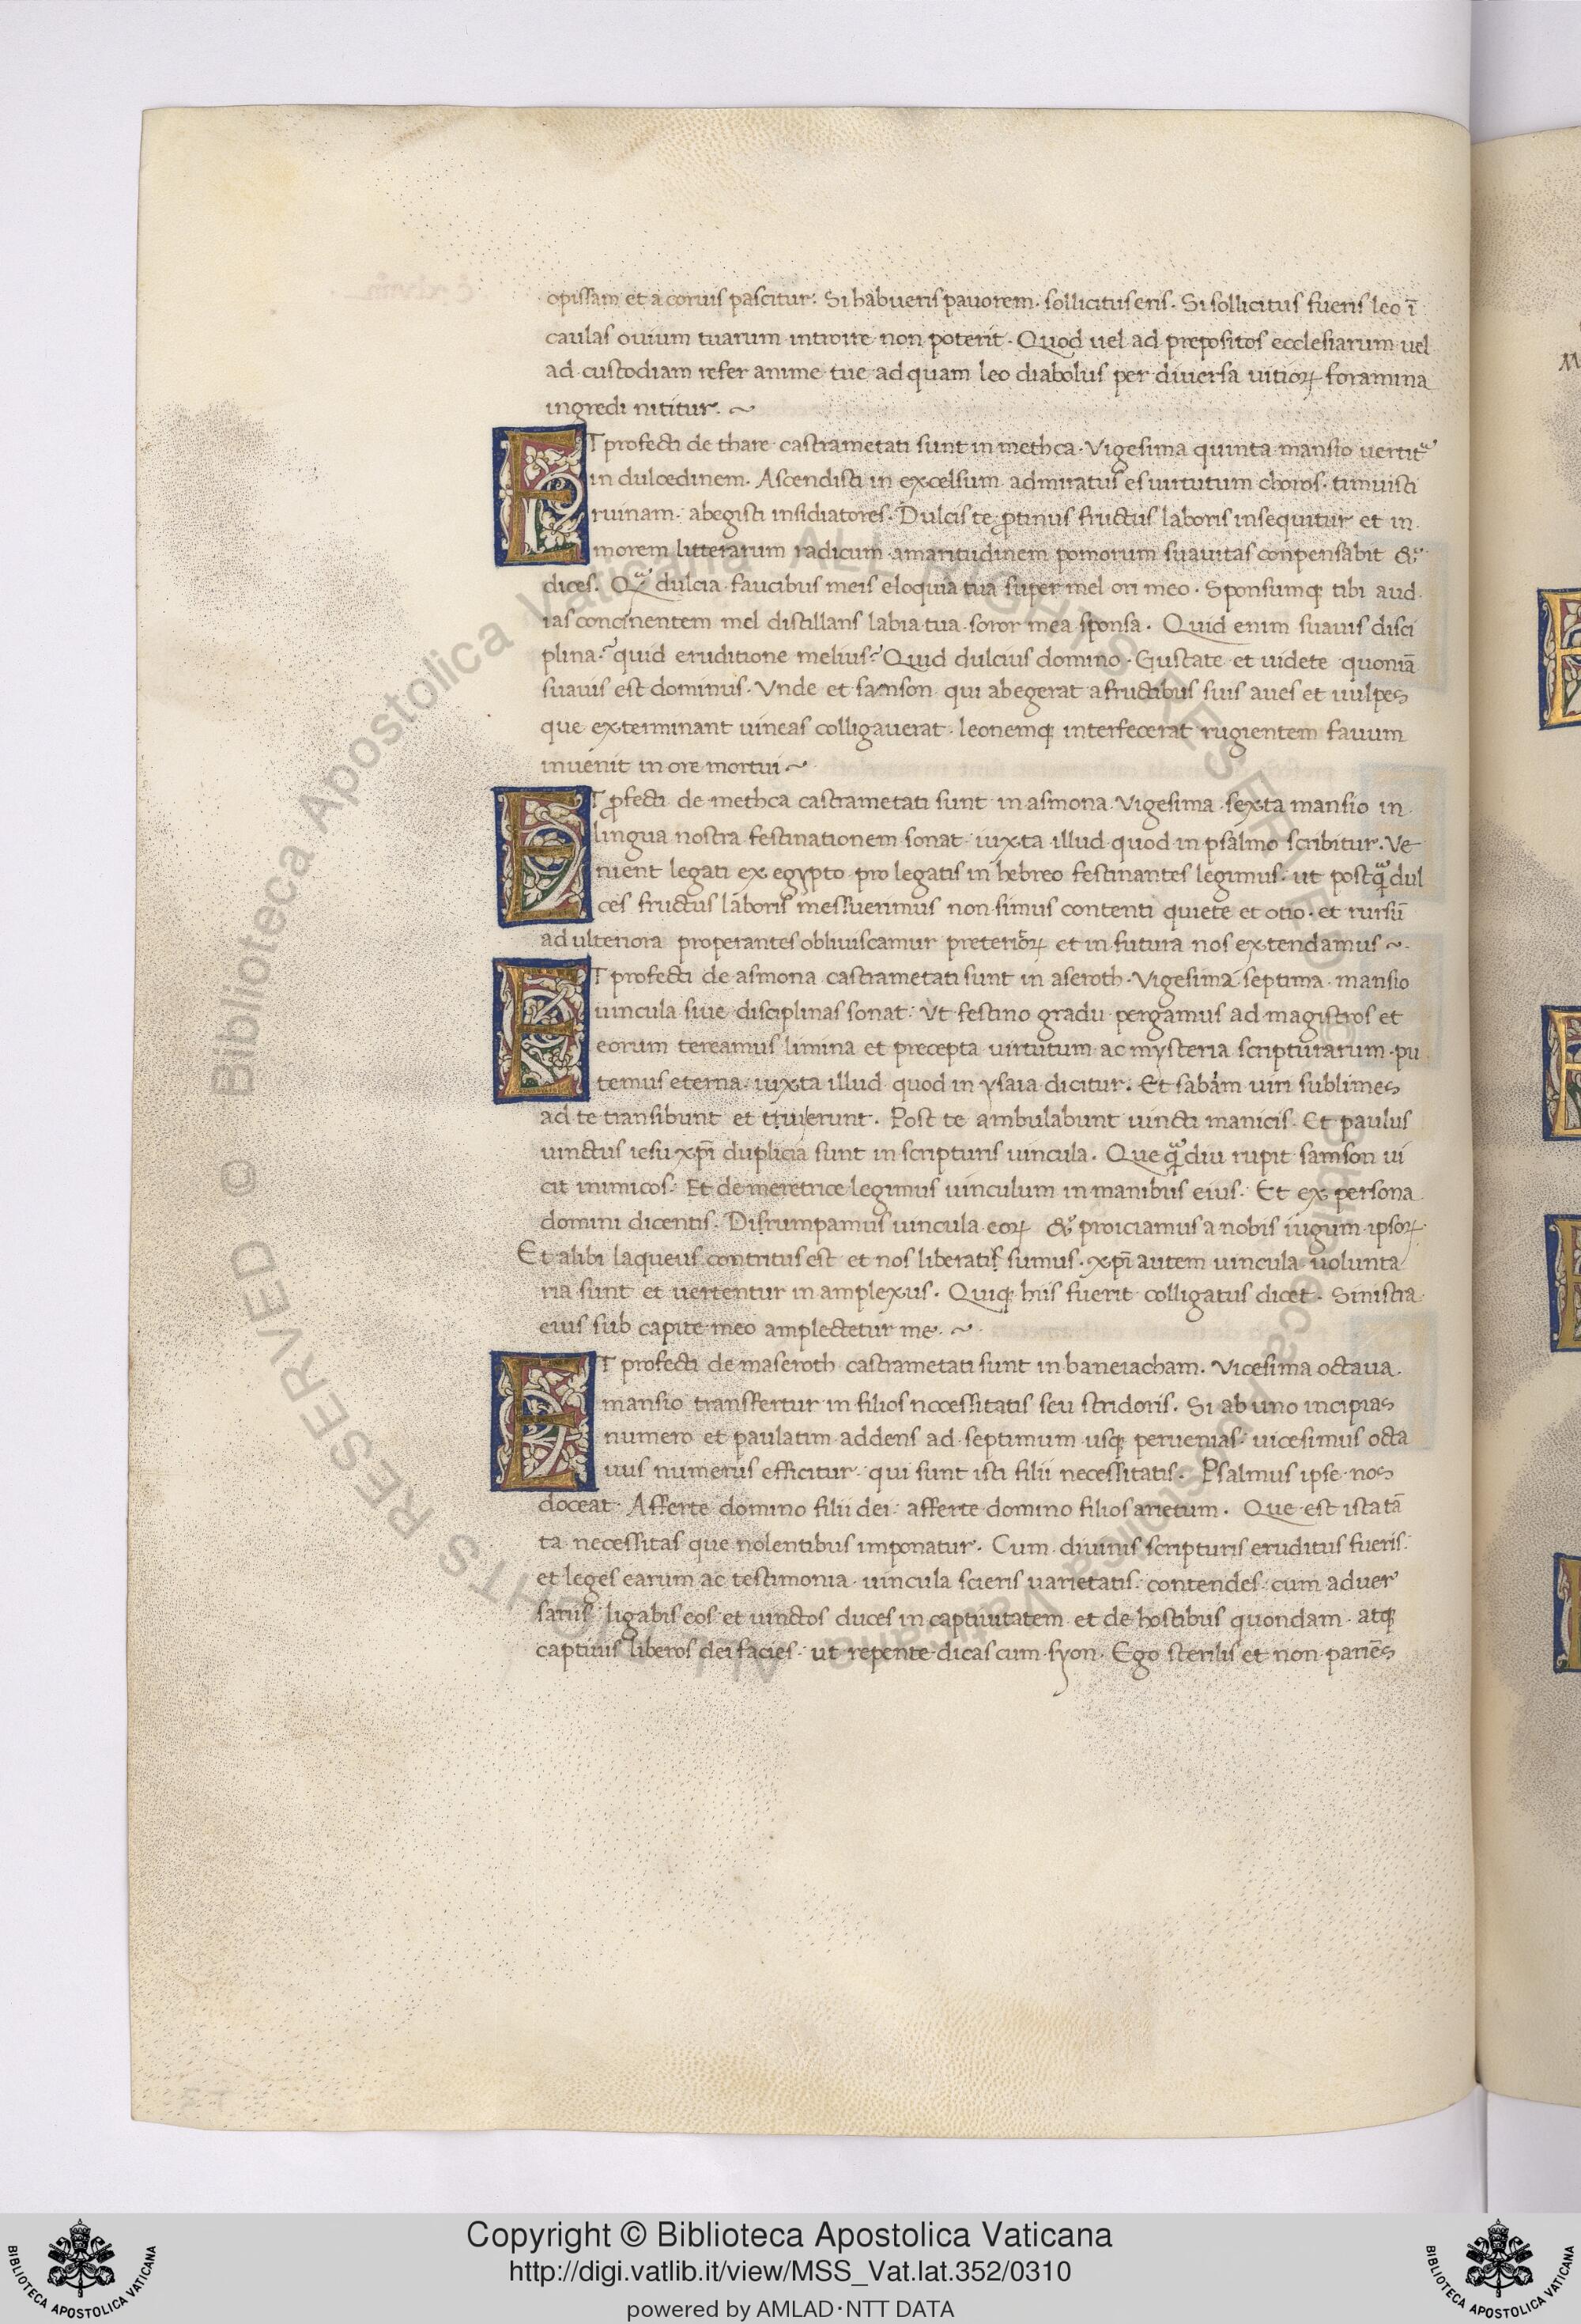 opissam et a coruis pascitur. Si habueris pauorem. sollicitus eris. Si sollicitus fueris leo ī
caulas ouium tuarum introire non poterit. Quod uel ad prepositos ecclesiarum uel
ad custodiam refer anime tue ad quam leo diabolus per diuersa uitioꝝ foramina
ingredi nititur. ~
ET profecti de thare castrametati sunt in methca. Vigesima quinta mansio uertitᷣ
in dulcedinem. Ascendisti in excelsum admiratus es uirtutum choros. timuisti
ruinam. abegisti insidiatores. Dulcis te ꝓtinus fructus laboris insequitur et in
morem litterarum radicum amaritudinem pomorum suauitas conpensabit &
dices. Qᷓ dulcia faucibus meis eloquia tua super mel ori meo. Sponsumqꝫ tibi aud
ias concinentem mel distillans labia tua soror mea sponsa. Quid enim suauis disci
plina? quid eruditione melius? Quid dulcius domino. Gustate et uidete quoniā
suauis est dominus. Vnde et samson qui abegerat a fructibus suis aues et uulpes
que exterminant uineas colligauerat. leonemqꝫ interfecerat rugientem fauum
inuenit in ore mortui ~
ET ꝓfecti de methca castrametati sunt in asmona. Vigesima sexta mansio in
lingua nostra festinationem sonat iuxta illud quod in psalmo scribitur. Ve
nient legati ex egypto pro legatis in hebreo festinantes legimus. ut postqᷓ dul
ces fructus laboris messuerimus non simus contenti quiete et otio. et rursū
ad ulteriora properantes obliuiscamur preterioꝝ et in futura nos extendamus ~.
ET profecti de asmona castrametati sunt in aseroth. Vigesima septima mansio
uincula siue disciplinas sonat. Vt festino gradu pergamus ad magistros et
eorum tereamus limina et precepta uirtutum ac mysteria scripturarum pu
temus eterna. iuxta illud quod in ysaia dicitur. Et sabaim uiri sublimes
ad te transibunt et tui erunt. Post te ambulabunt uincti manicis. Et paulus
uinctus iesu xp̄i duplicia sunt in scripturis uincula. Que qᷓdiu rupit samson ui
cit inimicos. Et de meretrice legimus uinculum in manibus eius. Et ex persona
domini dicentis. Disrumpamus uincula eoꝝ & proiciamus a nobis iugum ipsoꝝ.
Et alibi laqueus contritus est et nos liberati sumus. xp̄i autem uincula uolunta
ria sunt et uertentur in amplexus. Quiqꝫ hiis fuerit colligatus dicet. Sinistra
eius sub capite meo amplectetur me. ~
ET profecti de maseroth castrametati sunt in baneiacham. Vicesima octaua
mansio transfertur in filios necessitatis seu stridoris. Si ab uno incipias
numero et paulatim addens ad septimum usqꝫ peruenias. uicesimus octa
uus numerus efficitur. qui sunt isti filii necessitatis. Psalmus ipse nos
doceat. Afferte domino filii dei. afferte domino filios arietum. Que est ista tā
ta necessitas que nolentibus imponatur. Cum diuinis scripturis eruditus fueris.
et leges earum ac testimonia uincula scieris uarietatis. contendes cum aduer
sariis ligabis eos et uinctos duces in captiuitatem et de hostibus quondam atqꝫ
captiuis liberos dei facies. ut repente dicas cum syon. Ego sterilis et non pariēs
© Biblioteca Apostolica Vaticana ALL RIGHTS RESERVED
© Biblioteca Apostolica Vaticana ALL RIGHTS RESERVED
BIBLIOTECA APOSTOLICA VATICANA
Copyright © Biblioteca Apostolica Vaticana
http://digi.vatlib.it/view/MSS_Vat.lat.352/0310
powered by AMLAD·NTT DATA
BIBLIOTECA APOSTOLICA VATICANA